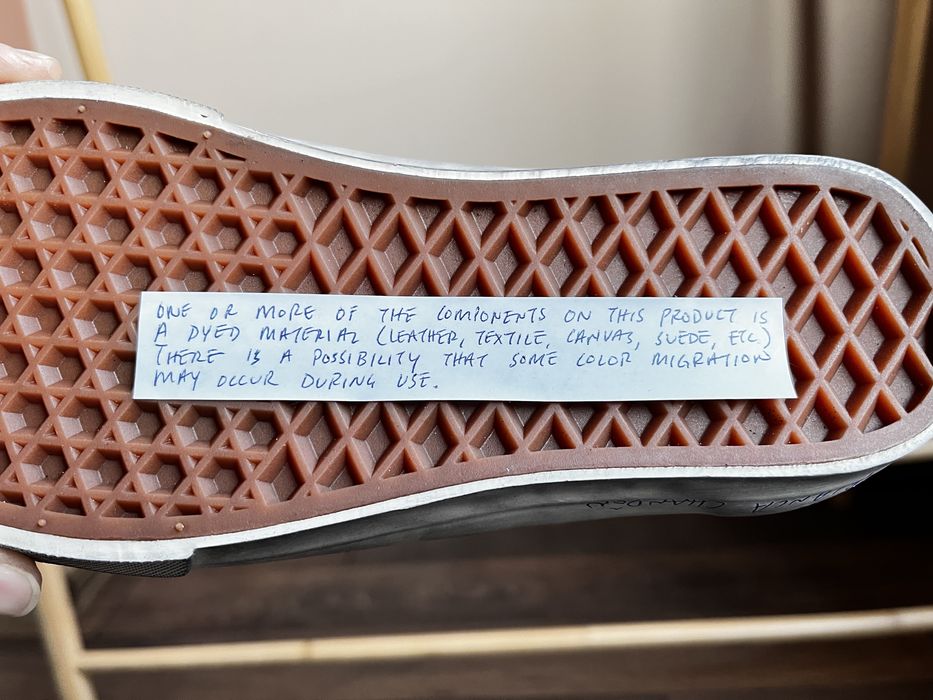 ONE OR MORE OF THE COMPONENTS ON THIS PRODUCT IS
A DYED MATERIAL (LEATHER, TEXTILE, CANVAS, SUEDE, ETC)
THERE IS A POSSIBILITY THAT SOME COLOR MIGRATION
MAY OCCUR DURING USE.